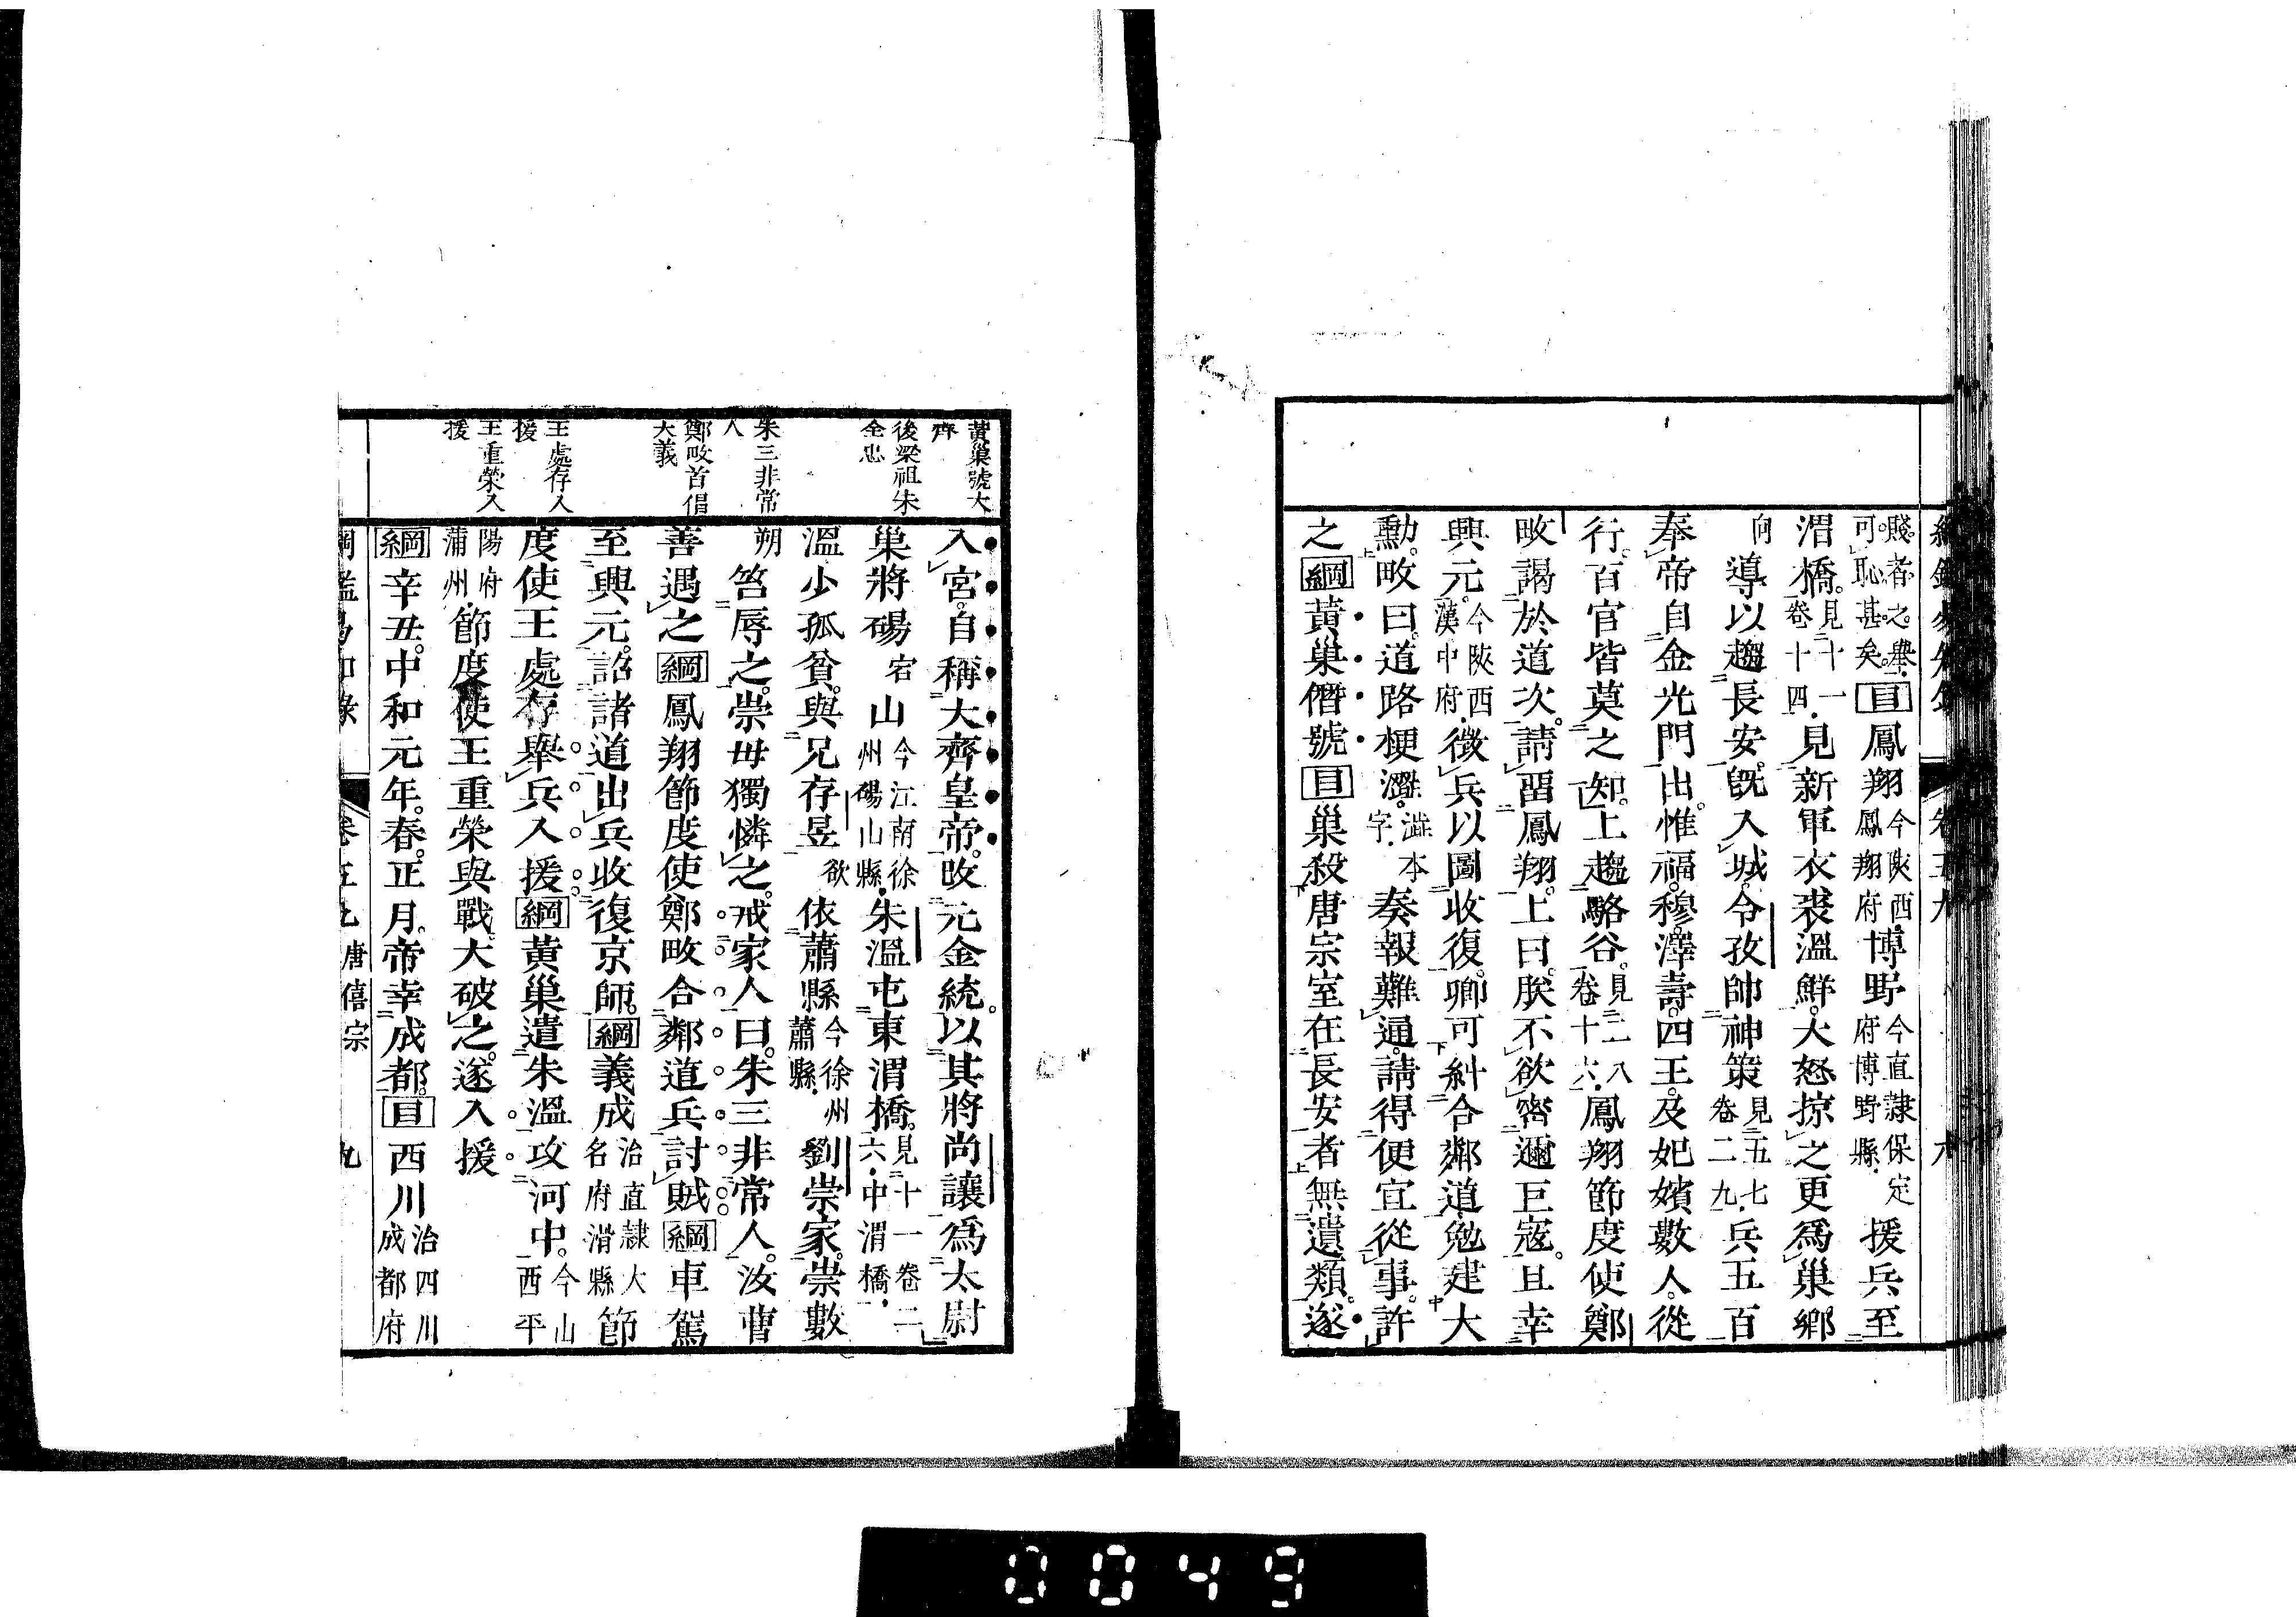 賤者之舉
可恥甚矣目鳳翔今陝西鳳翔府博野今直隸保定府博野縣援兵至
渭橋見二十一卷十四見新軍衣裘溫鮮大怒掠之更爲巢鄉
向導以趨長安旣入城令孜帥神策見五七卷二九兵五百
奉帝自金光門出惟福穆澤壽四王及妃嬪數人從
行百官皆莫之知上趨駱谷見二八卷十六鳳翔節度使鄭
畋謁於道次請畱鳳翔上曰朕不欲密邇巨寇且幸
興元今陝西漢中府徵兵以圖收復卿可糾合鄰道勉建大
勳畋曰道路梗澀澁本字奏報難通請得便宜從事許
之綱黃巢僭號目巢殺唐宗室在長安者無遺類遂
黃巢號大齊
後梁祖朱全忠
朱三非常人
鄭畋首倡大義
王處存入援
王重榮入援
入宮自稱大齊皇帝改元金統以其將尚讓爲太尉
巢將碭宕山今江南徐州碭山縣朱溫屯東渭橋見二十一卷二六中渭橋
溫少孤貧與兄存昱欲依蕭縣今徐州蕭縣劉崇家崇數
朔笞辱之崇母獨憐之戒家人曰朱三非常人汝曹
善遇之綱鳳翔節度使鄭畋合鄰道兵討賊綱車駕
至興元詔諸道出兵收復京師綱義成治直隸大名府滑縣節
度使王處存舉兵入援綱黃巢遣朱溫攻河中今山西平
陽府蒲州節度使王重榮與戰大破之遂入援
綱辛丑中和元年春正月帝幸成都目西川治四川成都府
卷五九唐僖宗 九